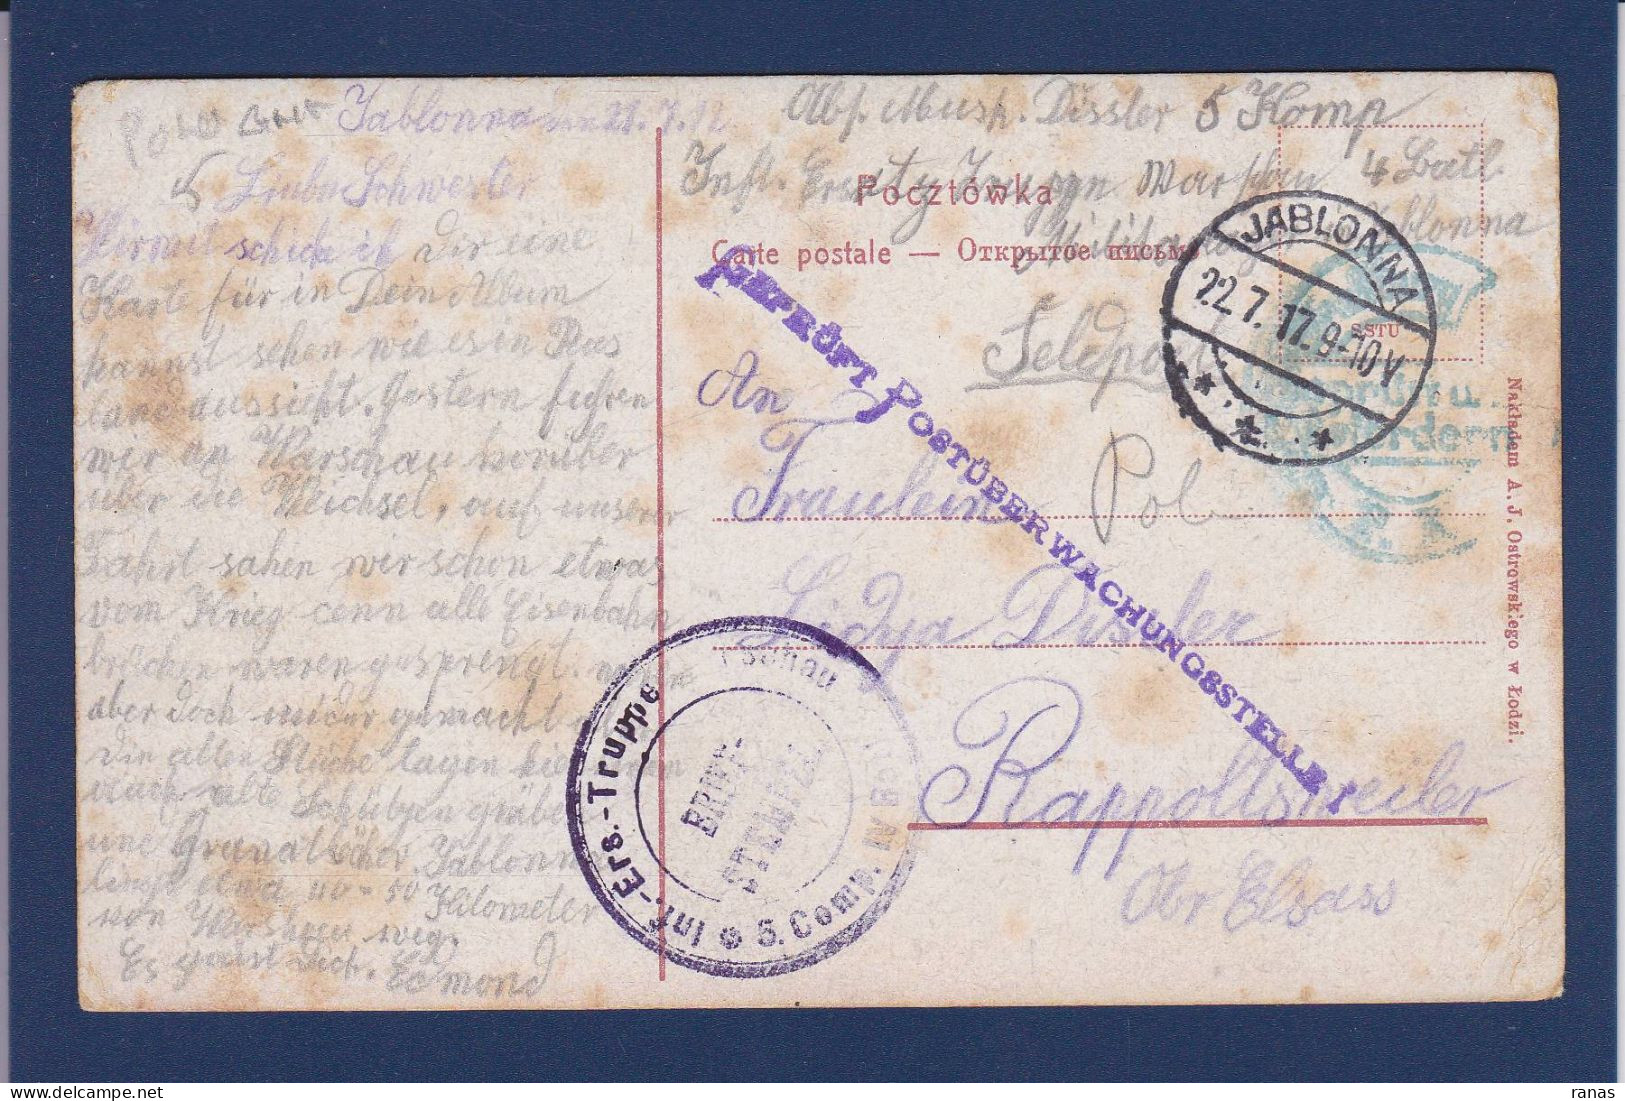 Jablonna den 21.7.17
Liebe Schwester
Hirmit schicke ich Dir eine
Karte für in Dein Album
kannst sehen wie es in Rus
land aussieht. Gestern fuhren
wir an Warschau vorüber
über die Weichsel, auf unserer
Fahrt sahen wir schon etwas
vom Krieg denn alle Eisenbahn
brücken waren gesprengt.
aber doch wieder gemacht
alten
auch alte Schützengräben
und Granatlöcher. Jablonna
liegt etwa 40-50 Kilometer
von Warschau weg.
Es grüsst Dich. Edmond
Abs. Musk. Dissler 5 Komp
Inft. Ersatz Truppen Warschau 4 Batl.
Jablonna
Pocztówka
Carte postale — Открытое письмо
Feldpost
JABLONNA
22.7.17.9-10V
GEPRÜFT POSTÜBERWACHUNGSSTELLE
An
Fräulein
Pol
Lidya Dissler
Rappoltsweiler
Obr Elsass
Inf.-Ers.-Truppe Warschau
5. Comp. IV Bat
BRIEF-
STEMPEL
Nakładem A. J. Ostrowskiego w Łodzi.
ranas